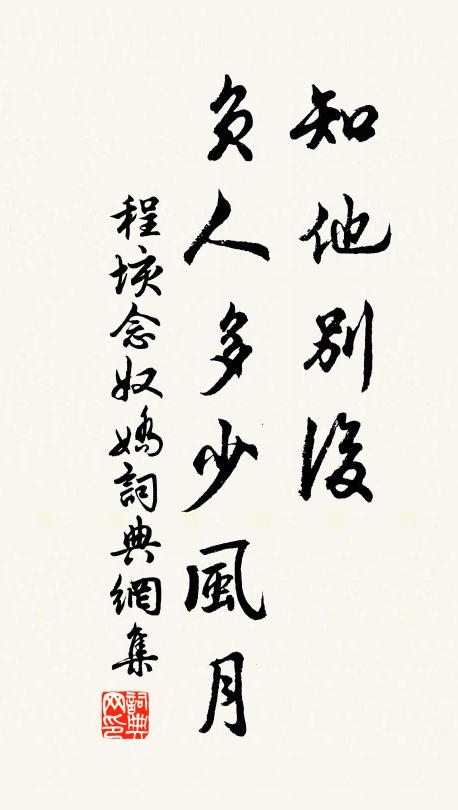 知他別後
負人多少風月
程垓念奴嬌詞典網集
詞典網印